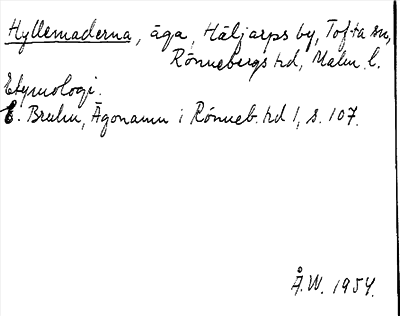 Hyllemaderna, äga, Häljarps by, Tofta sn,
Rönnebergs hd, Malm. l.
Etymologi.
E. Bruhn, Ägonamn i Rönneb. hd 1, s. 107.
Å.W. 1954.